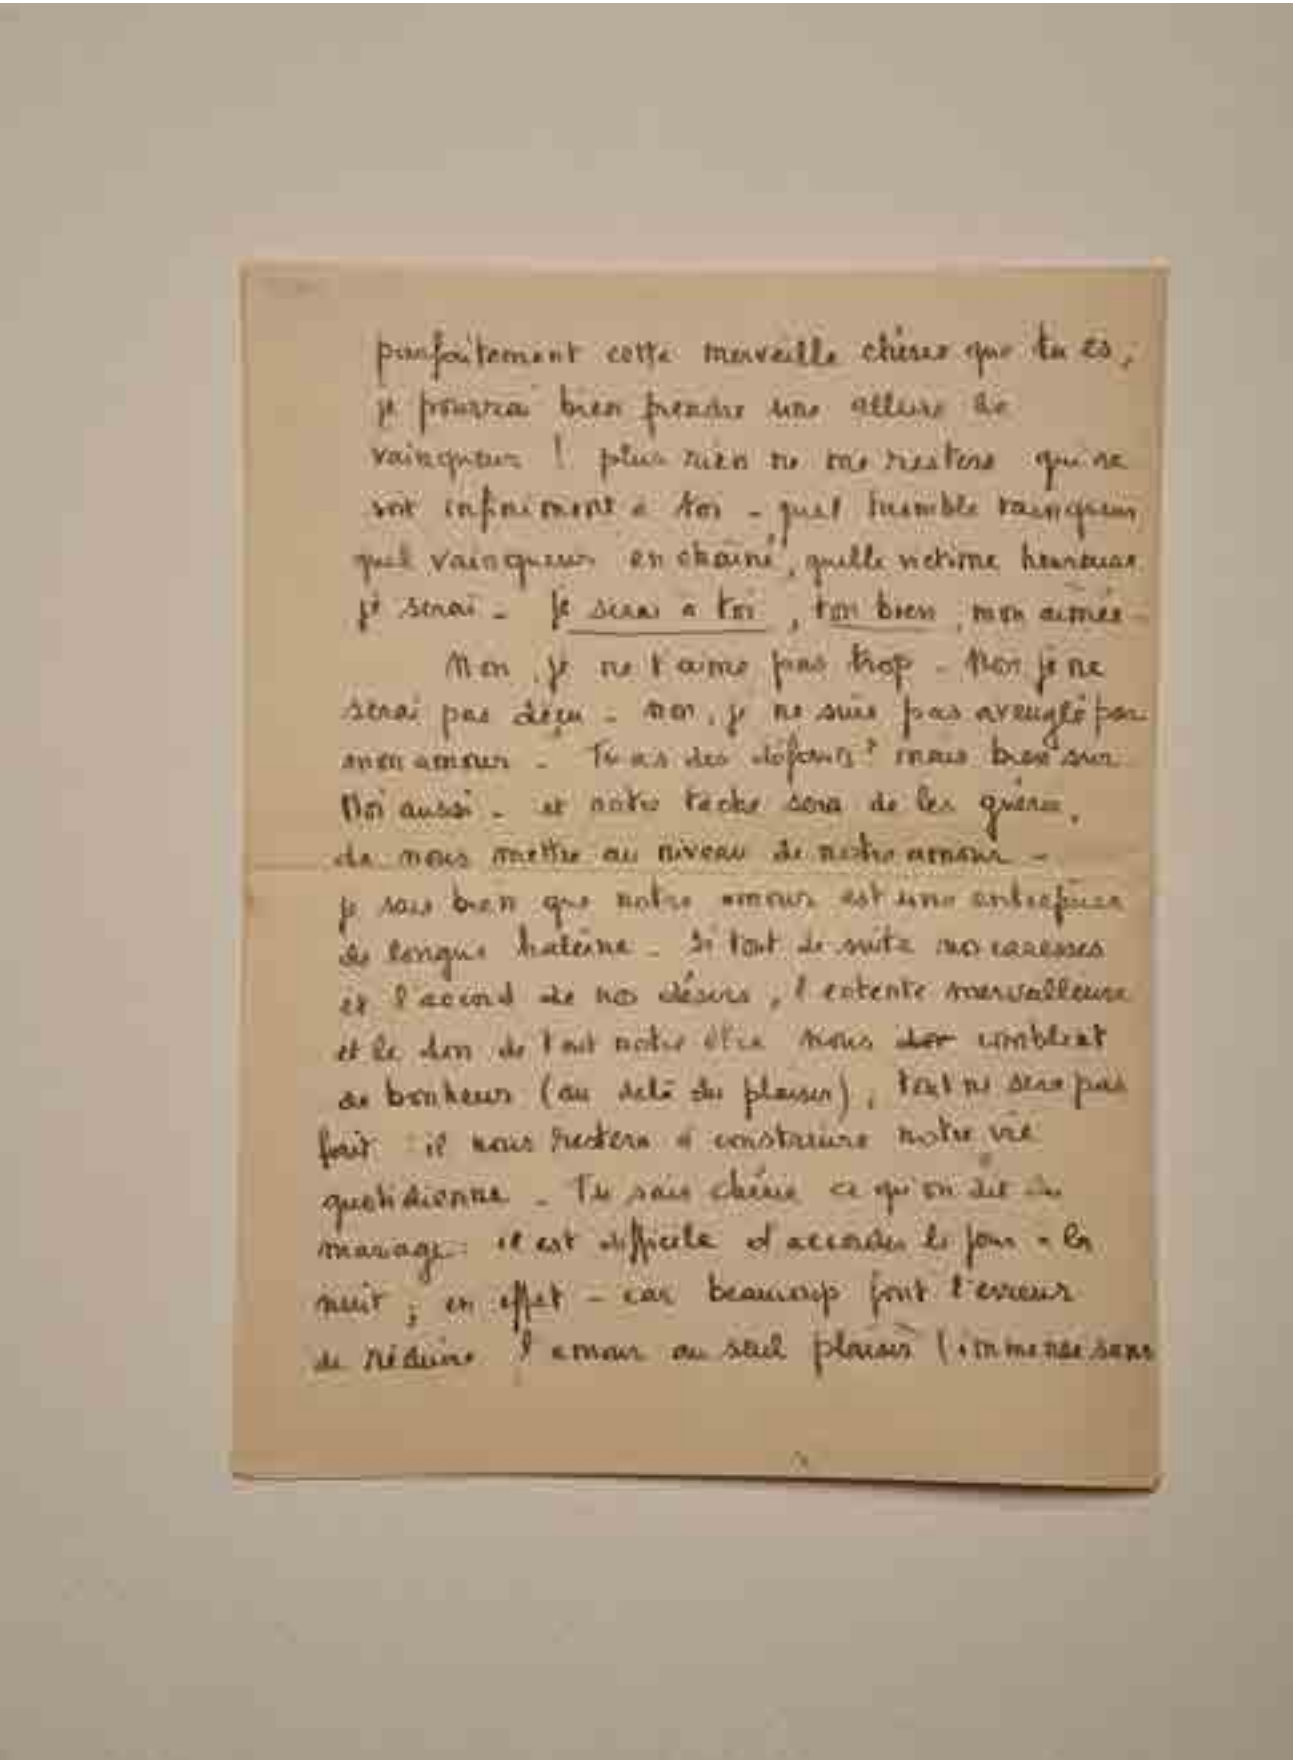 parfaitement cette merveille chérie que tu es,
je pourrai bien prendre une allure de
vainqueur ! plus rien ne me restera qui ne
soit infiniment à toi - quel humble vainqueur
quel vainqueur enchaîné, quelle victime heureuse
je serai - Je serai à toi, ton bien, mon aimée -
Non, je ne t'aime pas trop - Non je ne
serai pas déçu - non, je ne suis pas aveuglé par
mon amour - Tu as des défauts ? mais bien sur
Moi aussi - et notre tache sera de les guérir,
de nous mettre au niveau de notre amour -
je sais bien que notre amour est une entreprise
de longue haleine - Si tout de suite nos caresses
et l'accord de nos désirs, l'entente merveilleuse
et le don de tout notre être nous comblent
de bonheur (au delà du plaisir), tout ne sera pas
fait : il nous restera à construire notre vie
quotidienne - Tu sais chérie ce qu'on dit du
mariage : il est difficile d'accorder le jour à la
nuit ; en effet - car beaucoup font l'erreur
de réduire l'amour au seul plaisir (immense sans